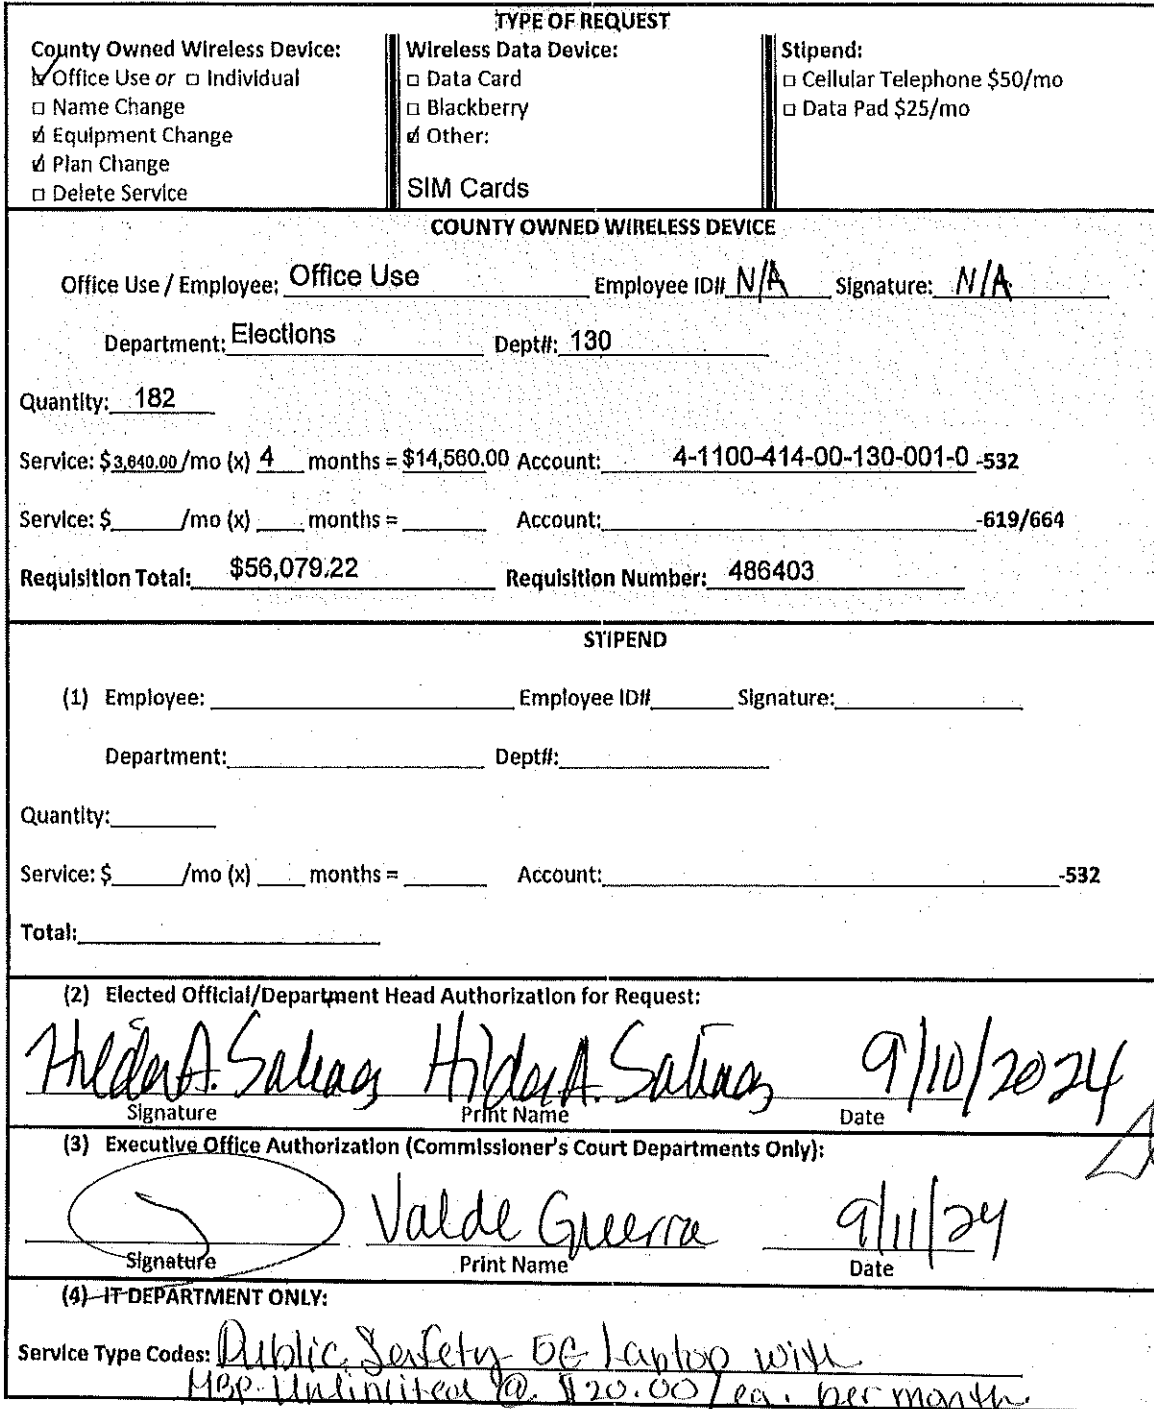 TYPE OF REQUEST
County Owned Wireless Device:
☑ Office Use or □ Individual
□ Name Change
☑ Equipment Change
☑ Plan Change
□ Delete Service
Wireless Data Device:
□ Data Card
□ Blackberry
☑ Other:
SIM Cards
Stipend:
□ Cellular Telephone $50/mo
□ Data Pad $25/mo
COUNTY OWNED WIRELESS DEVICE
Office Use / Employee: Office Use Employee ID# N/A Signature: N/A
Department: Elections Dept#: 130
Quantity: 182
Service: $3,640.00 /mo (x) 4 months = $14,560.00 Account: 4-1100-414-00-130-001-0 -532
Service: $ /mo (x) months = Account: -619/664
Requisition Total: $56,079.22 Requisition Number: 486403
STIPEND
(1) Employee: Employee ID# Signature:
Department: Dept#:
Quantity:
Service: $ /mo (x) months = Account: -532
Total:
(2) Elected Official/Department Head Authorization for Request:
Hilda A. Salinas Hilda A. Salinas 9/10/2024
Signature Print Name Date
(3) Executive Office Authorization (Commissioner's Court Departments Only):
Valde Guerra 9/11/24
Signature Print Name Date
(4) IT DEPARTMENT ONLY:
Service Type Codes: Public Safety 5G Laptop with
MBP Unlimited @ $20.00/ea. per month.